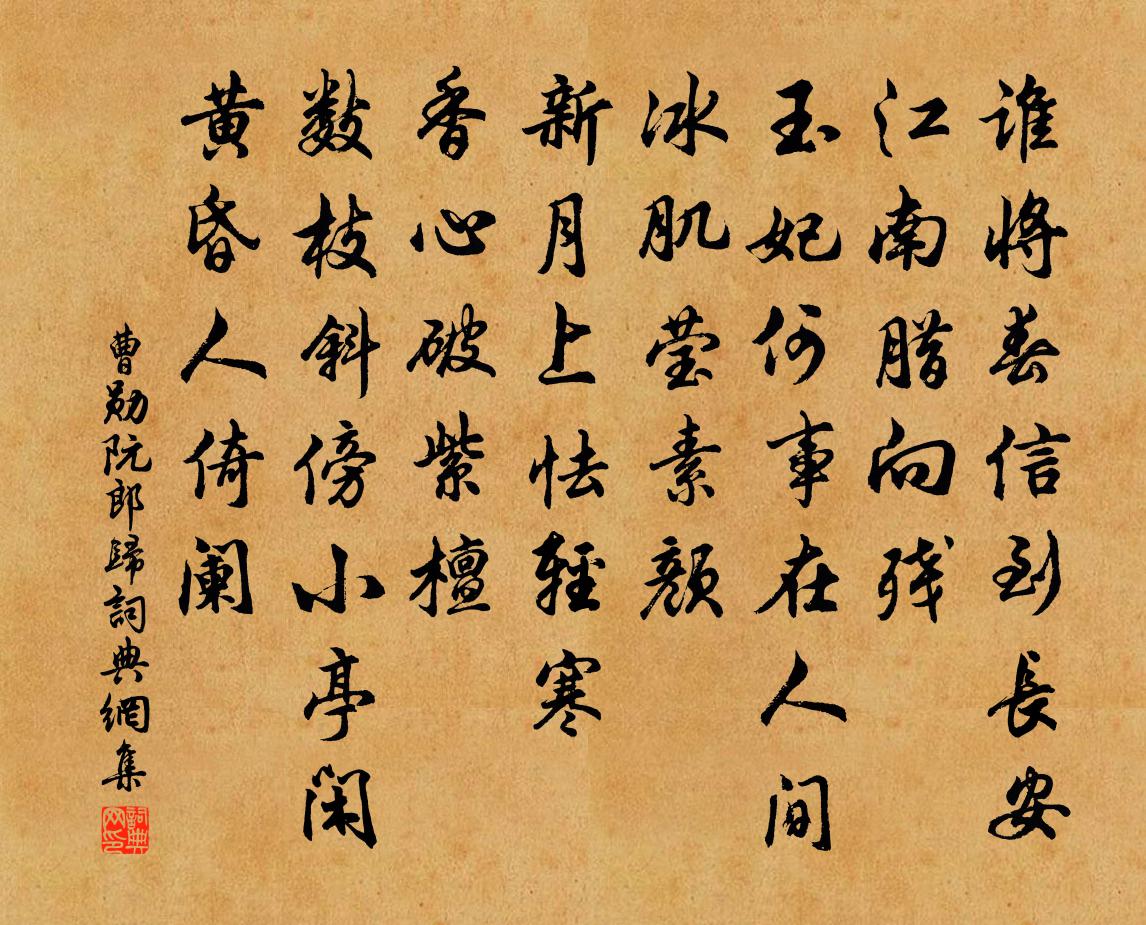 谁将春信到長安
江南腊向残
玉妃何事在人间
冰肌莹素颜
新月上怯輕寒
香心破紫檀
数枝斜傍小亭闲
黄昏人倚阑
曹勋阮郎歸詞典網集
詞典网印